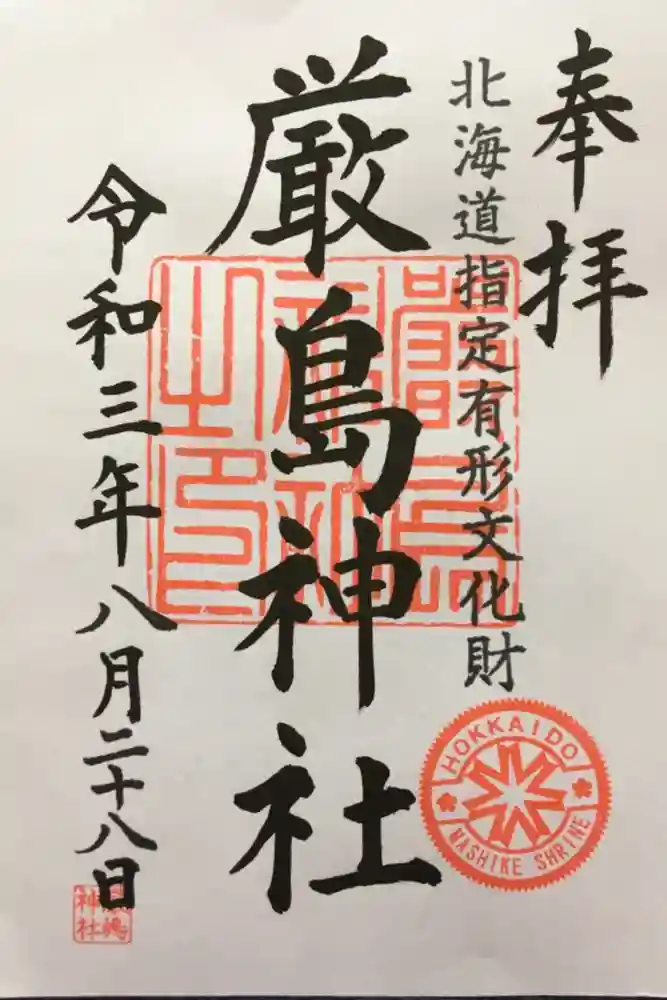 奉拝
北海道指定有形文化財
厳島神社
令和三年八月二十八日
HOKKAIDO
MASHIKE SHRINE